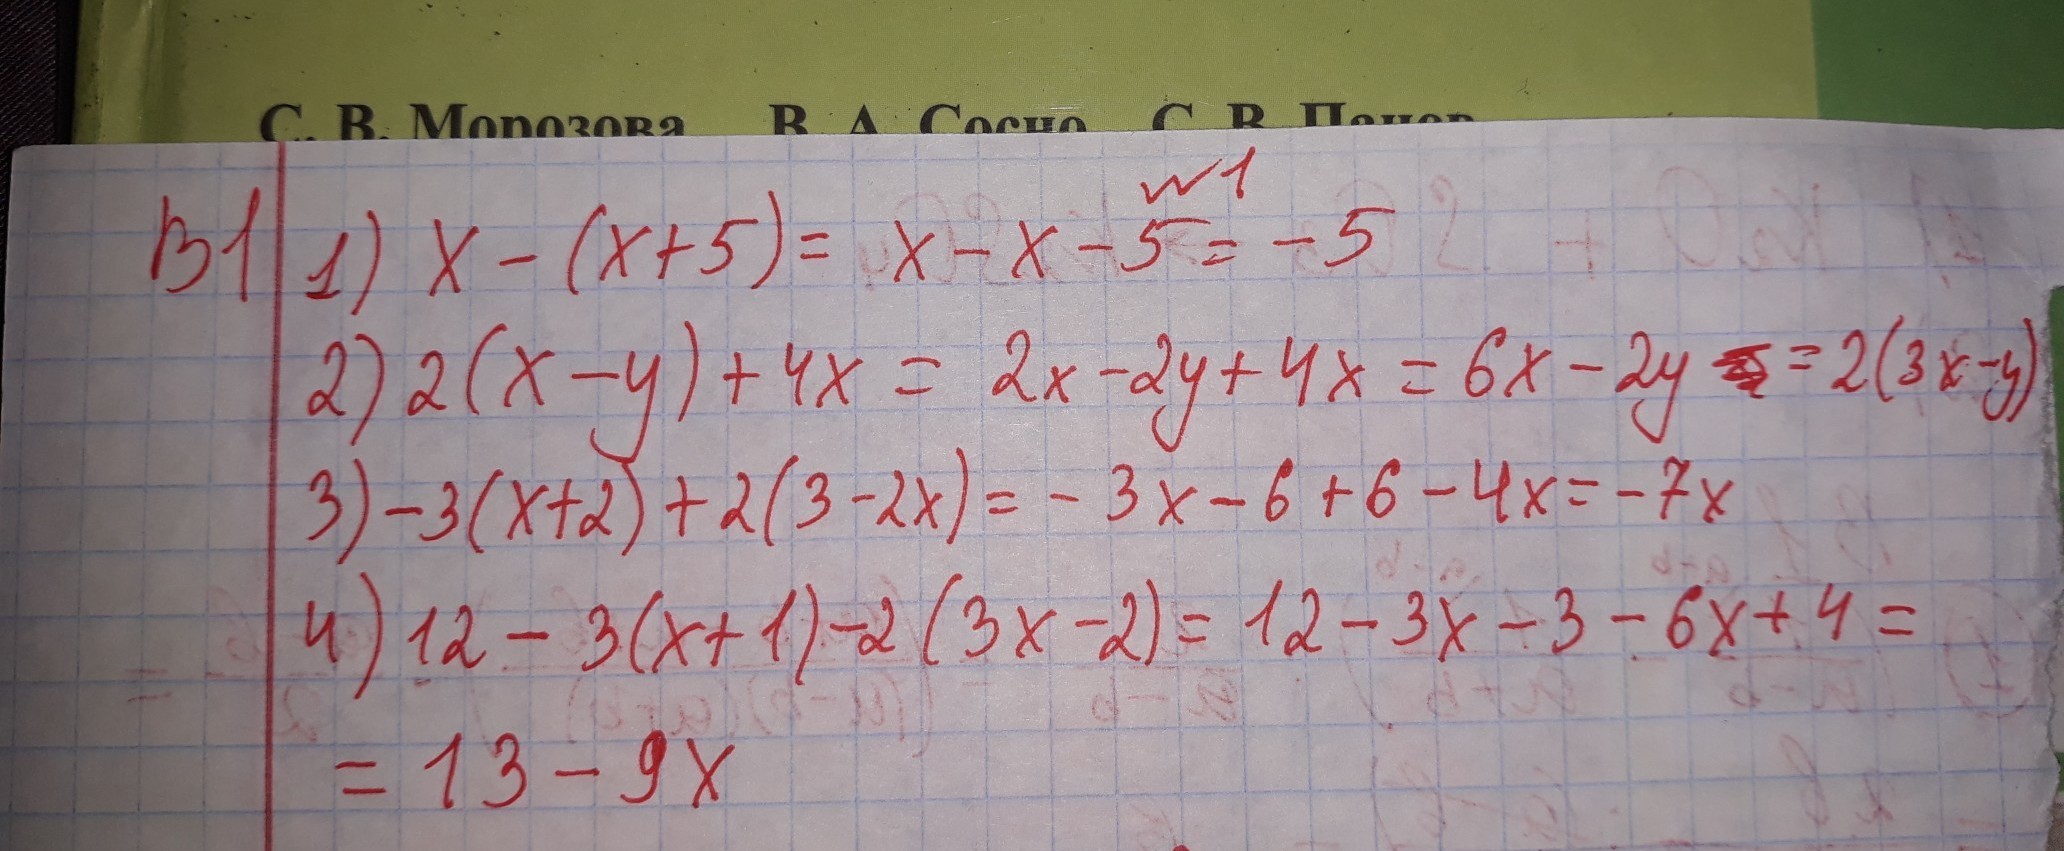 С. В. Морозова В. А. Сосно С. В. Панов
№1
В1 1) x - (x+5) = x - x - 5 = -5
2) 2(x-y) + 4x = 2x - 2y + 4x = 6x - 2y = 2(3x-y)
3) -3(x+2) + 2(3-2x) = -3x - 6 + 6 - 4x = -7x
4) 12 - 3(x+1) - 2(3x-2) = 12 - 3x - 3 - 6x + 4 =
= 13 - 9x